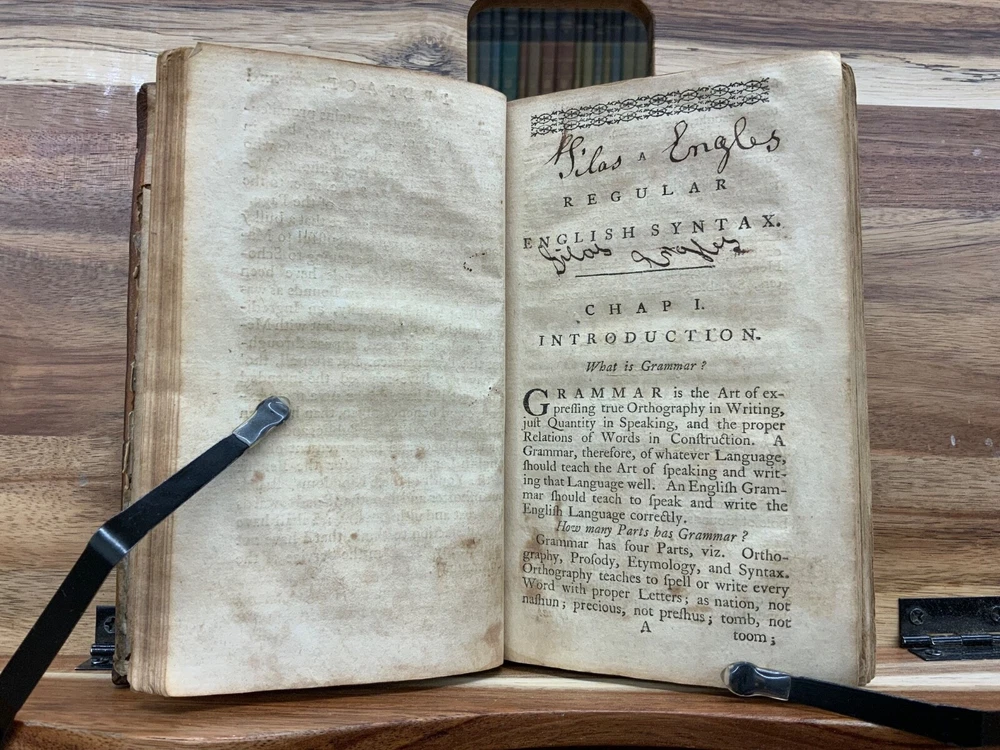 Silas Engles
A
REGULAR
ENGLISH SYNTAX.
Silas Engles
CHAP I.
INTRODUCTION.
What is Grammar?
GRAMMAR is the Art of ex-
preſſing true Orthography in Writing,
juſt Quantity in Speaking, and the proper
Relations of Words in Conſtruction. A
Grammar, therefore, of whatever Language,
ſhould teach the Art of ſpeaking and writ-
ing that Language well. An Engliſh Gram-
mar ſhould teach to ſpeak and write the
Engliſh Language correctly.
How many Parts has Grammar?
Grammar has four Parts, viz. Ortho-
graphy, Proſody, Etymology, and Syntax.
Orthography teaches to ſpell or write every
Word with proper Letters; as nation, not
naſhun; precious, not preſhus; tomb, not
A
toom;